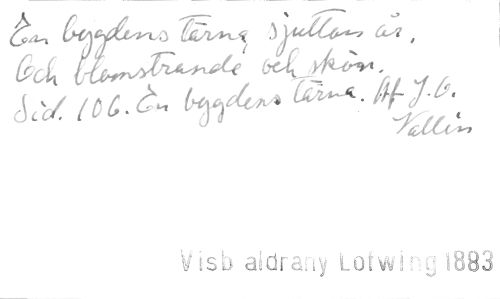 En bygdens tärna, sjuttan år,
Och blomstrande och skön.
Sid. 106. En bygdens tärna. Af J. O.
Vallin
Visb aldrany Lofwing 1883